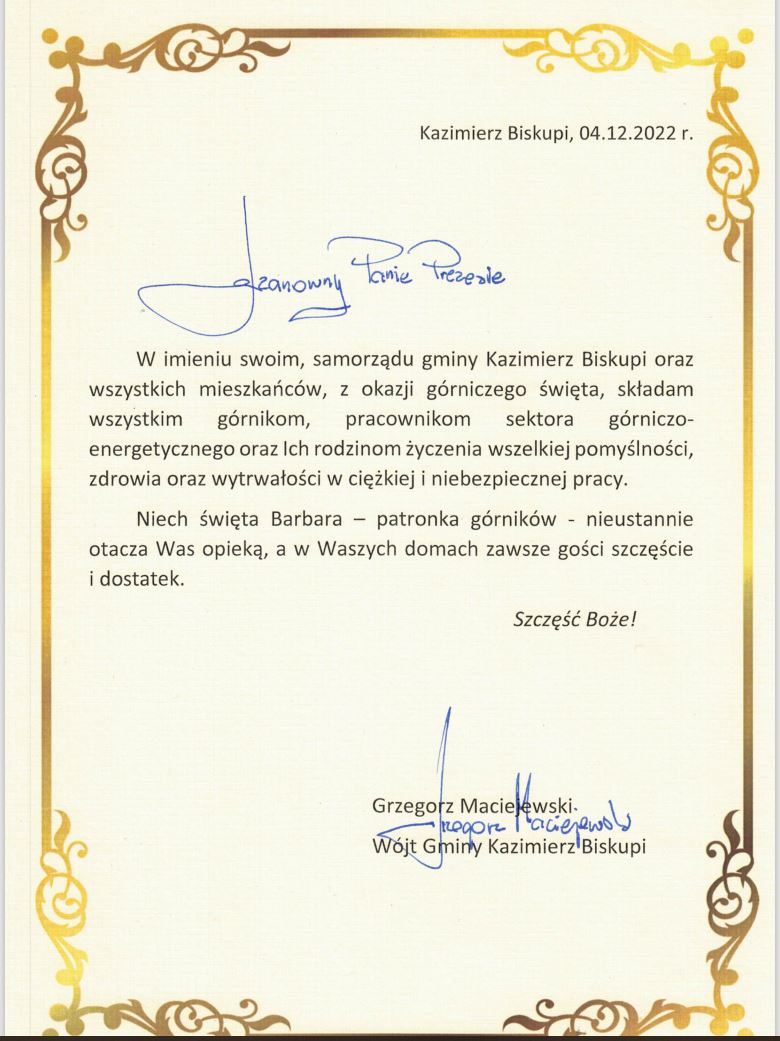 Kazimierz Biskupi, 04.12.2022 r.
Szanowny Panie Prezesie
W imieniu swoim, samorządu gminy Kazimierz Biskupi oraz
wszystkich mieszkańców, z okazji górniczego święta, składam
wszystkim górnikom, pracownikom sektora górniczo-
energetycznego oraz Ich rodzinom życzenia wszelkiej pomyślności,
zdrowia oraz wytrwałości w ciężkiej i niebezpiecznej pracy.
Niech święta Barbara – patronka górników - nieustannie
otacza Was opieką, a w Waszych domach zawsze gości szczęście
i dostatek.
Szczęść Boże!
Grzegorz Maciejewski
Grzegorz Maciejewski
Wójt Gminy Kazimierz Biskupi